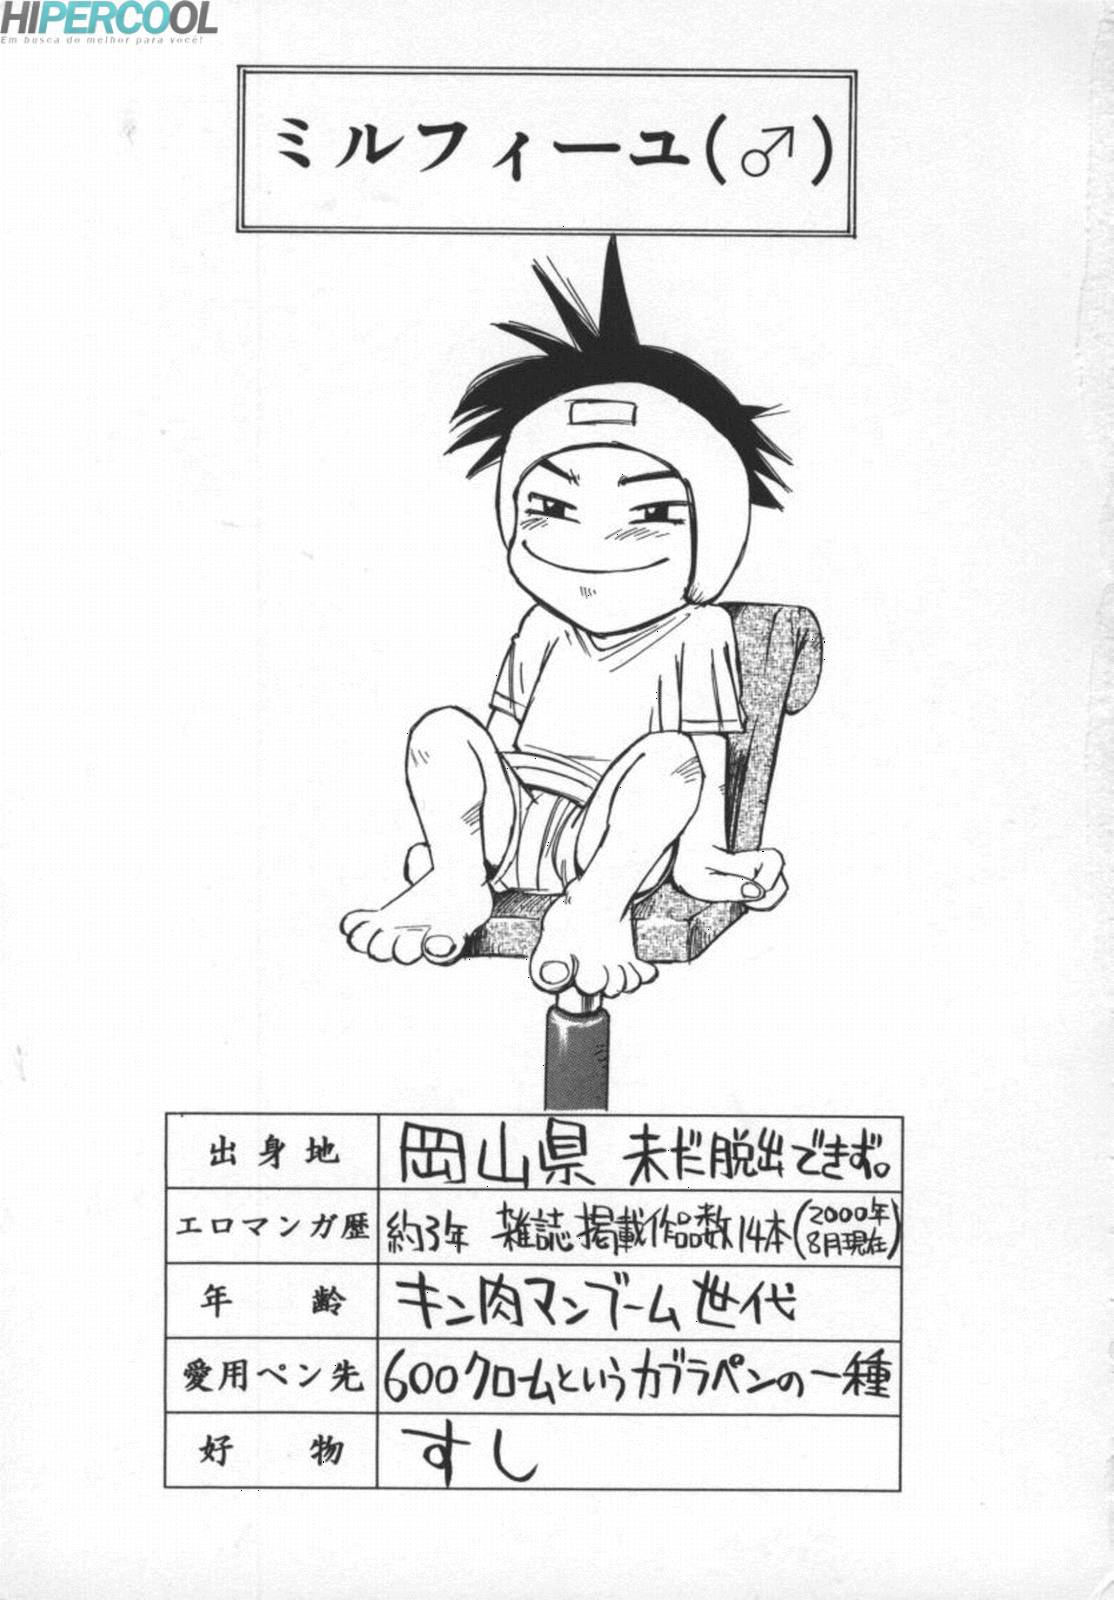 HIPERCOOL
Em busca do melhor para você!
ミルフィーユ(♂)
出身地 岡山県 未だ脱出できず。
エロマンガ歴 約3年 雑誌掲載作品数14本(2000年8月現在)
年齢 キン肉マンブーム世代
愛用ペン先 600クロームというカブラペンの一種
好物 すし